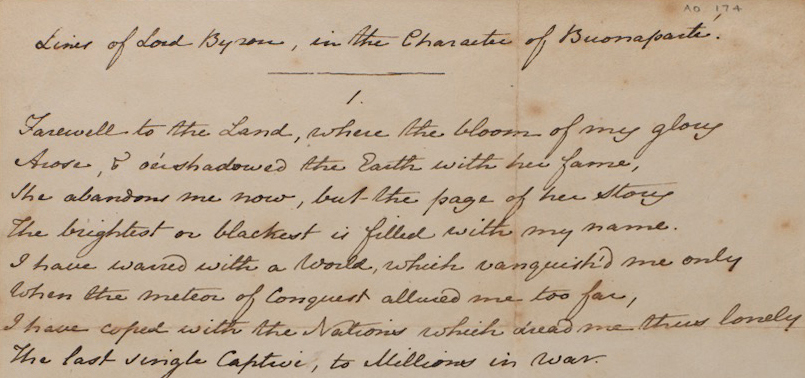 AD 174
Lines of Lord Byron, in the Character of Buonaparte.
1.
Farewell to the Land, where the bloom of my glory
Arose, & o'ershadowed the Earth with her fame,
She abandons me now, but the page of her story
The brightest or blackest is filled with my name.
I have warred with a World, which vanquish'd me only
When the meteor of Conquest allured me too far,
I have coped with the Nations which dread me thus lonely
The last single Captive, to Millions in war.